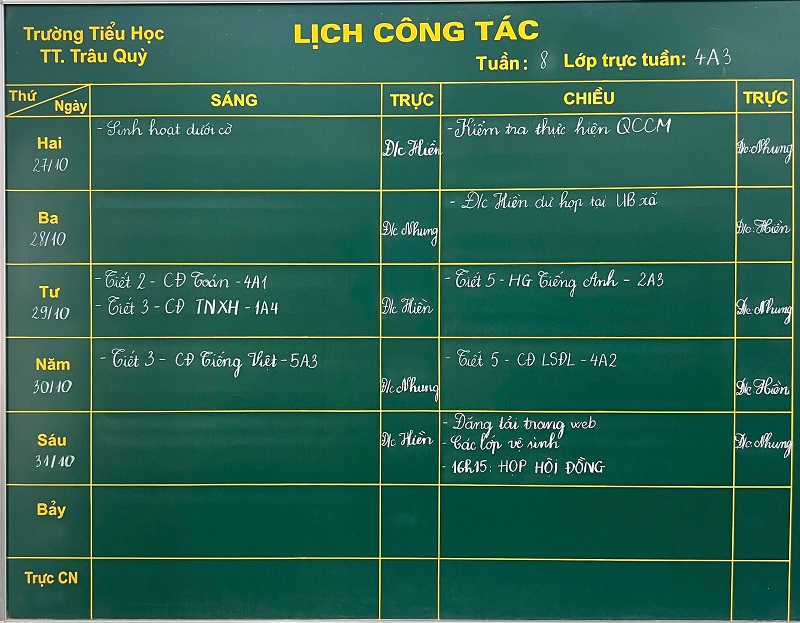 Trường Tiểu Học
TT. Trâu Quỳ
LỊCH CÔNG TÁC
Tuần: 8 Lớp trực tuần: 4A3
Thứ
Ngày
SÁNG
TRỰC
CHIỀU
TRỰC
Hai
27/10
- Sinh hoạt dưới cờ
Đ/c Hiền
- Kiểm tra thực hiện QCCM
Đ/c: Nhung
Ba
28/10
Đ/c Nhung
- Đ/c Hiền dự họp tại UB xã
Đ/c: Hiền
Tư
29/10
- Tiết 2 - CĐ Toán - 4A1
- Tiết 3 - CĐ TNXH - 1A4
Đ/c Hiền
- Tiết 5 - HG Tiếng Anh - 2A3
Đ/c Nhung
Năm
30/10
- Tiết 3 - CĐ Tiếng Việt - 5A3
Đ/c Nhung
- Tiết 5 - CĐ LSĐL - 4A2
Đ/c: Hiền
Sáu
31/10
Đ/c Hiền
- Đăng tải trang web
- Các lớp vệ sinh
- 16h15: HỌP HỘI ĐỒNG
Đ/c: Nhung
Bảy
Trực CN